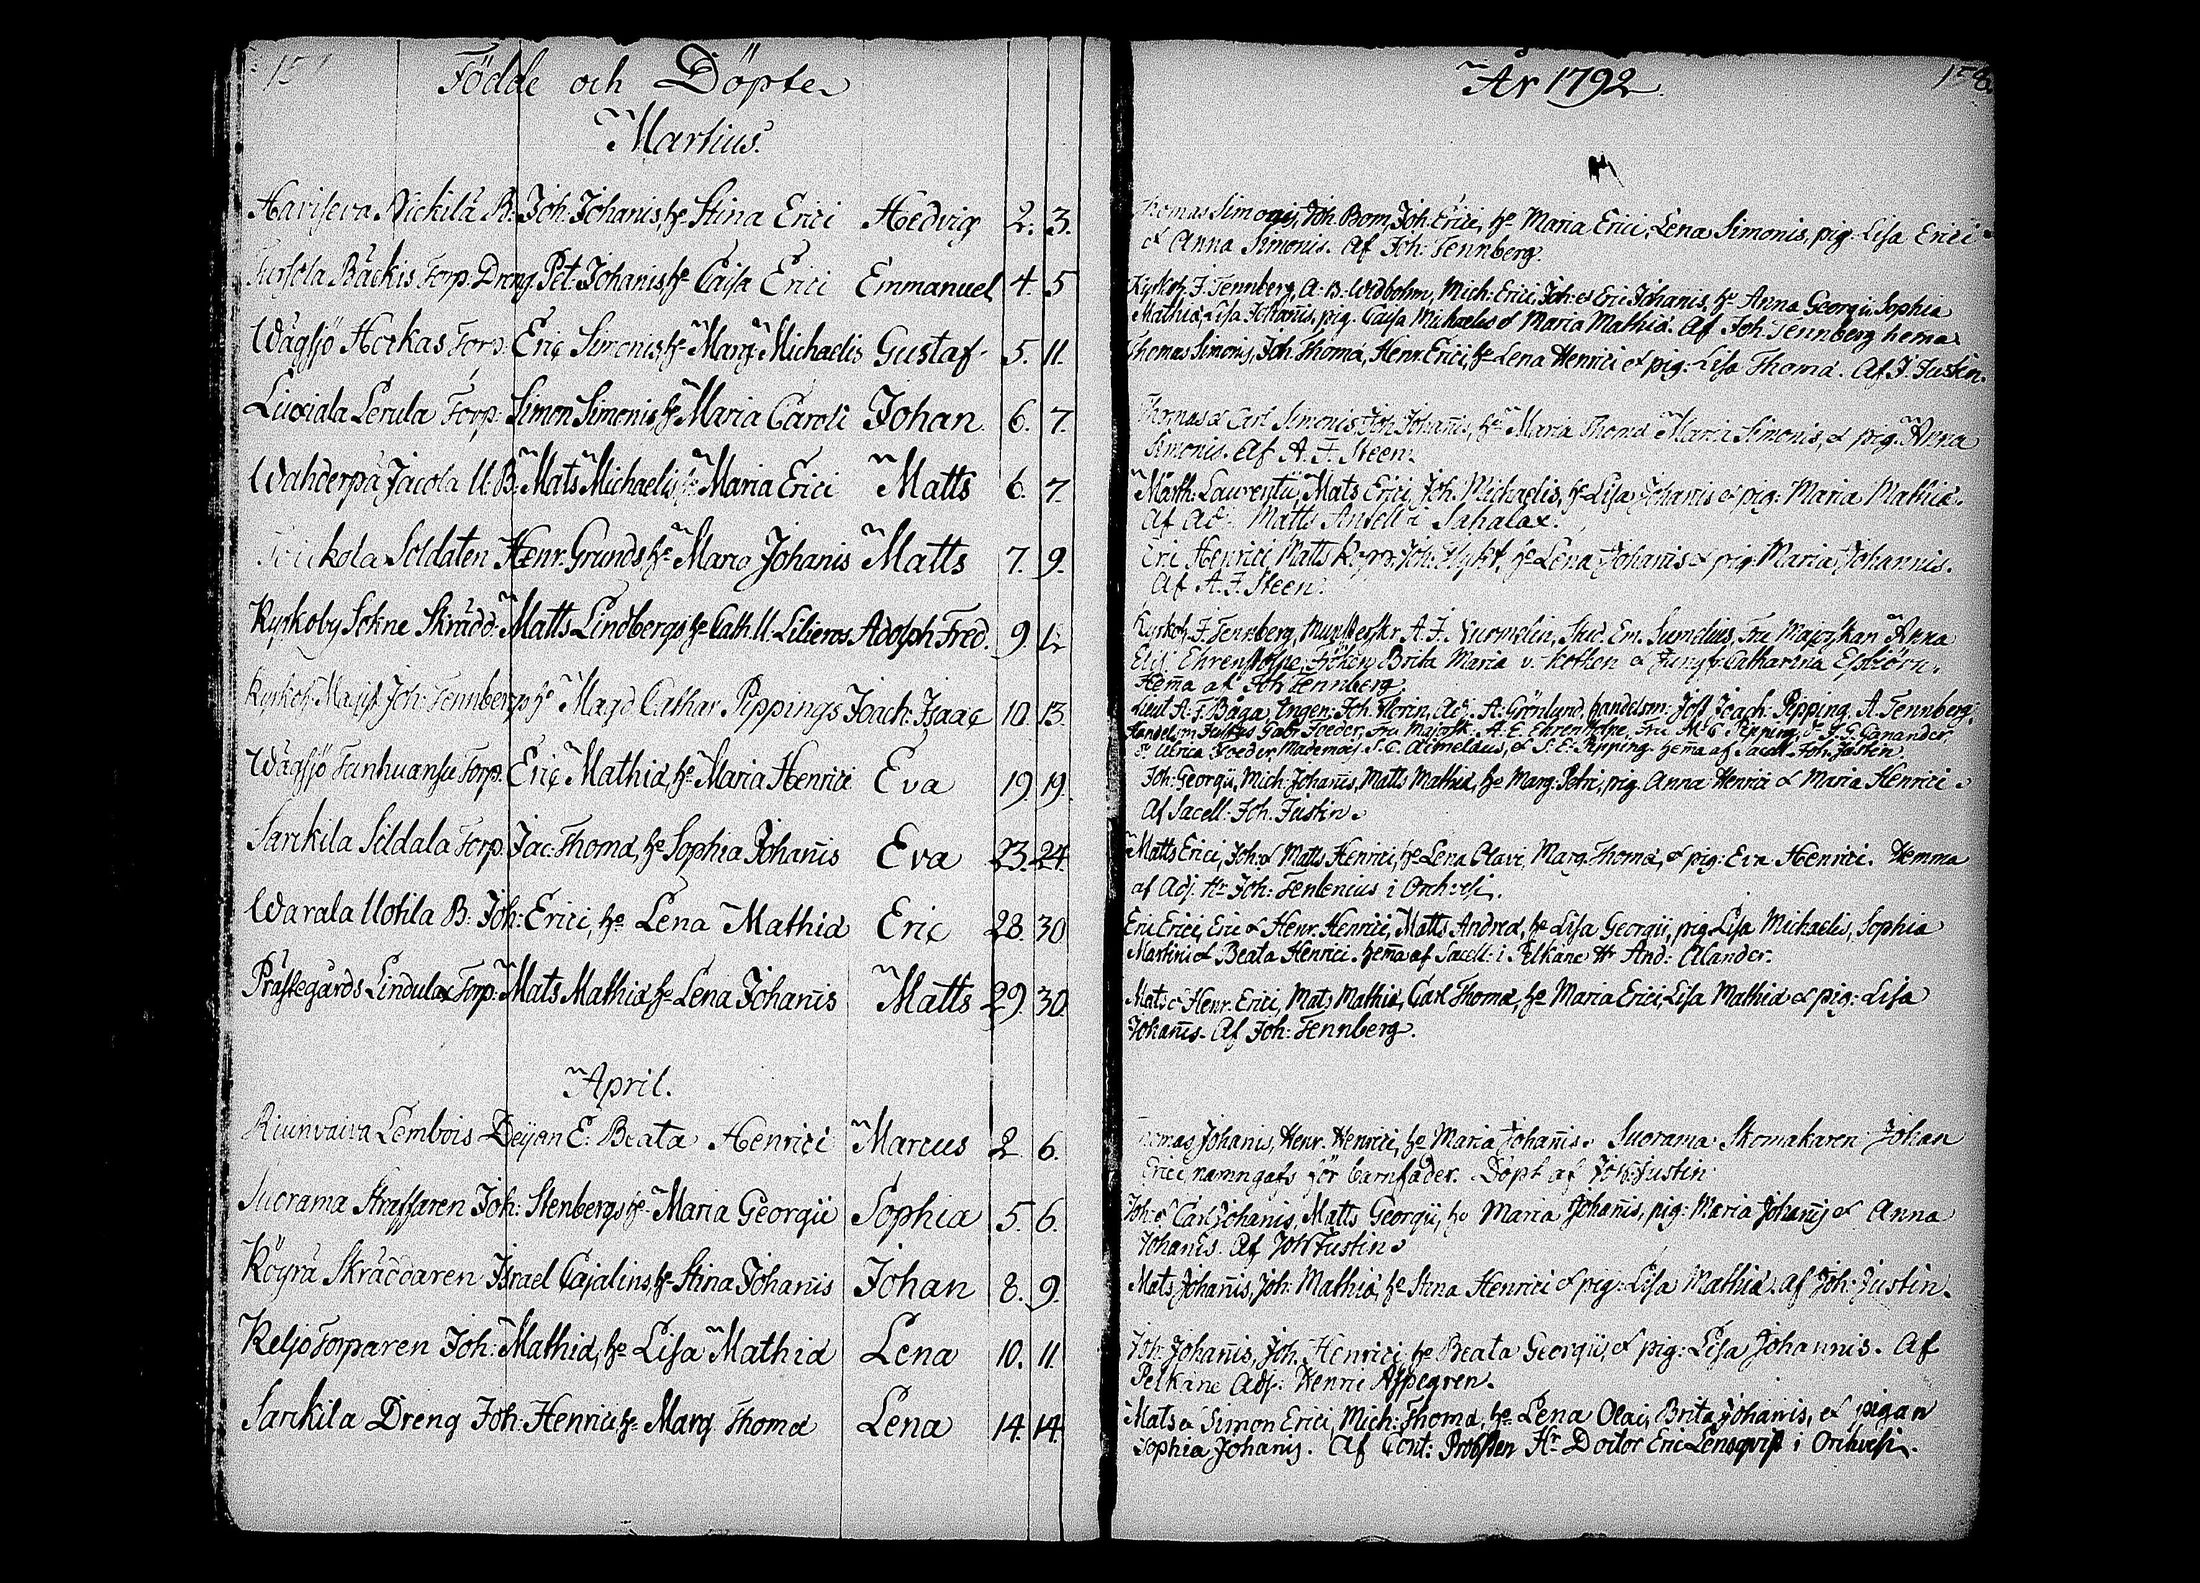 Födde och Döpte
Martius.
Haviseva Nickilä B: Joh: Johanis, he Stina Erici Hedvig 2. 3.
Bäckis Torp. Dreng Pet: Johanis he Caisa Erici Emmanuel 4. 5
Wägsjö Horkas Torp. Eric Simonis, he Marg: Michaelis Gustaf 5. 11.
Liuxiala Lerula Torp. Simon Simonis, he Maria Caroli Johan 6. 7.
Wahderpä Jacola U. B: Mats Michaelis, he Maria Erici Matts 6. 7.
Soldaten Henr: Grunds, he Maria Johanis Matts 7. 9.
Kyrkoby Sokne Skrädd: Matts Lindbergs he Cath. U. Liberos Adolph Fred. 9. 12
Kyrkoh: Magist Joh: Tennbergs he Magd Cathar Pippings Joach: Isaac 10. 13.
Wägsjö Torp. Eric Mathiæ, he Maria Henrici Eva 19. 19.
Sarckila Sildala Torp. Jac: Thomæ, he Sophia Johanis Eva 23. 24.
Warala Uotila B: Joh: Erici, he Lena Mathiæ Eric 28. 30
Prästegårds Lindula Torp. Mats Mathiæ he Lena Johanis Matts 29. 30
April.
Lembois Dejan E: Beata Henrici Marcus 2 6.
Suorama Straffaren Joh: Stenbergs he Maria Georgii Sophia 5. 6.
Köyrä Skräddaren Israel Cajalins, he Stina Johanis Johan 8. 9.
Keljo Torparen Joh: Mathiæ, he Lisa Mathiæ Lena 10. 11.
Sarckila Dreng Joh: Henrici, he Marg Thomæ Lena 14. 14.
År 1792 158.
Thomas Simonis, Joh. Bom, Joh. Erici, he Maria Erici, Lena Simonis, pig: Lisa Erici
& Anna Simonis. Af Joh: Tennberg.
Kyrkoh. J. Tennberg, A: B: Widbohm, Mich: Erici, Joh: et Eric Johanis, he Anna Georgii, Sophia
Mathiæ, Lisa Johanis, pig. Caisa Michaelis & Maria Mathiæ. Af Joh: Tennberg hema
Thomas Simonis, Joh. Thomæ, Henr: Erici, he Lena Henrici & pig: Lisa Thomæ. Af J. Justin.
Thomas & Carl Simonis, Joh: Johanis, he Maria Thomæ Maria Simonis, & pig. Anna
Simonis. Af A. F. Steen.
Marth: Laurentii, Mats Erici, Joh: Michaelis, he Lisa Johanis & pig: Maria Mathiæ.
Af Adj: Matts i Sahalax.
Eric Henrici, Matts Joh: Flykt, he Lena Johanis & pig: Maria Johannis.
Af A. F. Steen.
Kyrkoh. J. Tennberg, A. J. Nurmelin, Stud. Em. Sumelius, Fru Majorskan Anna
Elis: Ehrenstolpe, Fröken Brita Maria v. Kothen & Jungfr Catharina Elfbjörn.
Hema af Joh Tennberg.
Lieut A. F. Båga, Ingen: Joh: Norin, Adj: A: Grönlund, handelsm: Joach: Pipping, A. Tennberg,
Handelsm Gabr Foeder, Fru Majorsk: A. E. Ehrenstolpe, Fru M: C Pipping, J. G. Ganander
Ulrica Foeder, Mademois: S. C. & S. E. Pipping hema af Sacell Joh: Justin.
Joh: Georgii, Mich: Johanis, Matts Mathiæ, he Marg: Petri, pig. Anna Henrici & Maria Henrici.
Af Sacell: Joh. Justin.
Matts Erici, Joh: & Matts Henrici, he Lena Olavi, Marg. Thomæ, & pig: Eva Henrici. Hemma
af Adj. Hr Joh: Tenlenius i Orihvesi.
Eric Erici, Eric & Henr: Henrici, Matts Andreæ, he Lisa Georgii, pig Lisa Michaelis, Sophia
Martini & Beata Henrici. hema af Sacell: i Pelkäne Hr And: Alander.
Mats & Henr: Erici, Mats Mathiæ, Carl Thomæ, he Maria Erici, Lisa Mathiæ & pig: Lisa
Johanis. Af Joh: Tennberg.
Thomas Johanis, Henr. Henrici, he Maria Johanis. Suorama Skomakaren Johan
Erici namngafs för barnfader. Döpt af Joh: Justin.
Joh: & Carl Johanis, Matts Georgii, he Maria Johanis, pig: Maria Johanis & Anna
Johanis. Af Joh Justin.
Mats Johanis, Joh: Mathiæ, he Stina Henrici & pig: Lisa Mathiæ. af Joh: Justin.
Joh: Johanis, Joh. Henrici, he Beata Georgii, & pig: Lisa Johannis. Af
Pelkäne Adj: Henric Aspegren.
Mats & Simon Erici, Mich: Thomæ, he Lena Olai, Brita Johanis, & pigan
Sophia Johanis. Af Cont: Probsten Hr Doctor Eric Lencqvist i Orihvesi.